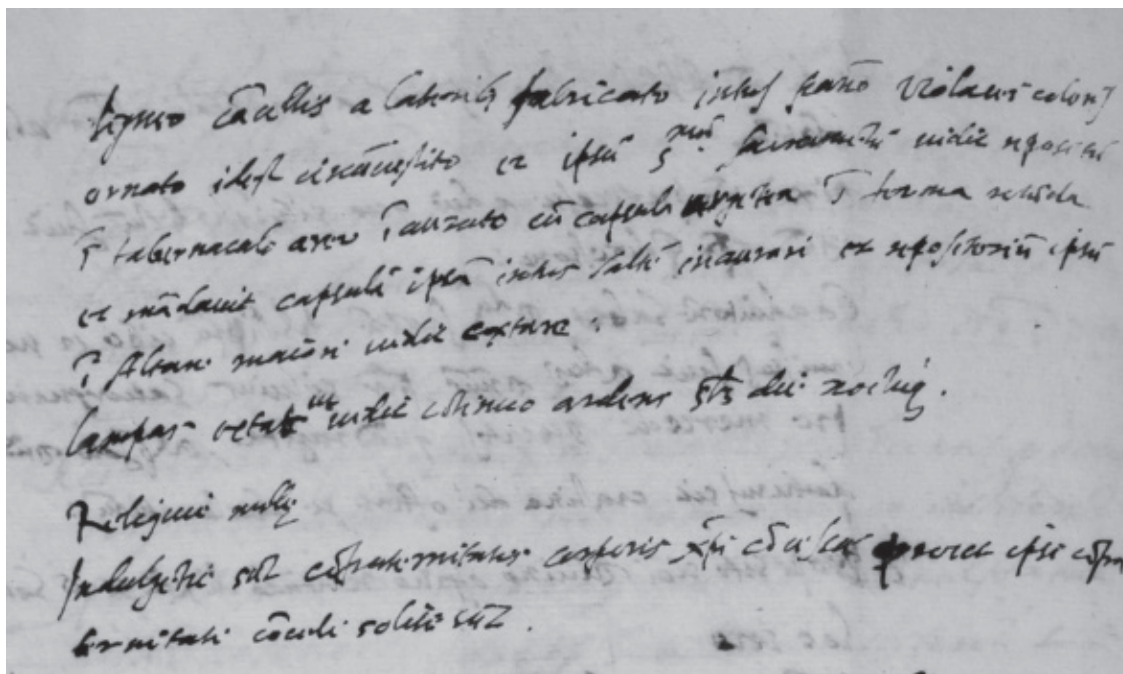 ligneo cācellis a laterib; fabricato intus panno violacei coloris
ornato idest circūuestito et ipsū S.mū Sacramētū uidit reponi
ī tabernaculo aereo ī aurato cū capsula argētea ī forma rotūda
et mādauit capsulā ipsā intus saltē inaurari et repositoriū ipsū
ī Altari maiori uidit extare.
lampas uidit cōtinuo ardens die noctuq.
Reliquie nulle
Indulgētie sūt cōfraternitatis corporis xp̄i prout ipsi cōfra
ternitati cōcedi solite sūt.